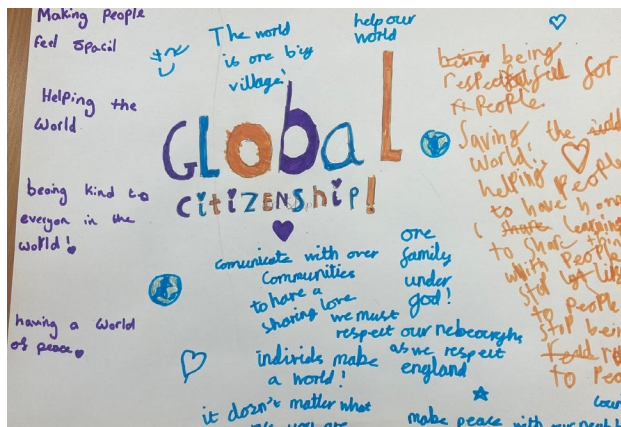 Making People
feel Spacil
Helping the
World
being kind to
everyon in the
world!
having a World
of peace
The world
is one big
village!
help our
world
GLobaL
CitiZENShip!
comunicate with over
Communities
to have a
sharing love
one
family
under
god!
we must
respect our nebourghs
as we respect
england
individs make
a world!
it dosn't matter what
you are
make peace with our
being being
respectful for
People
Saving the
World!
helping People
to have
learning
to share
with People
Stop
to People
Stop being
to